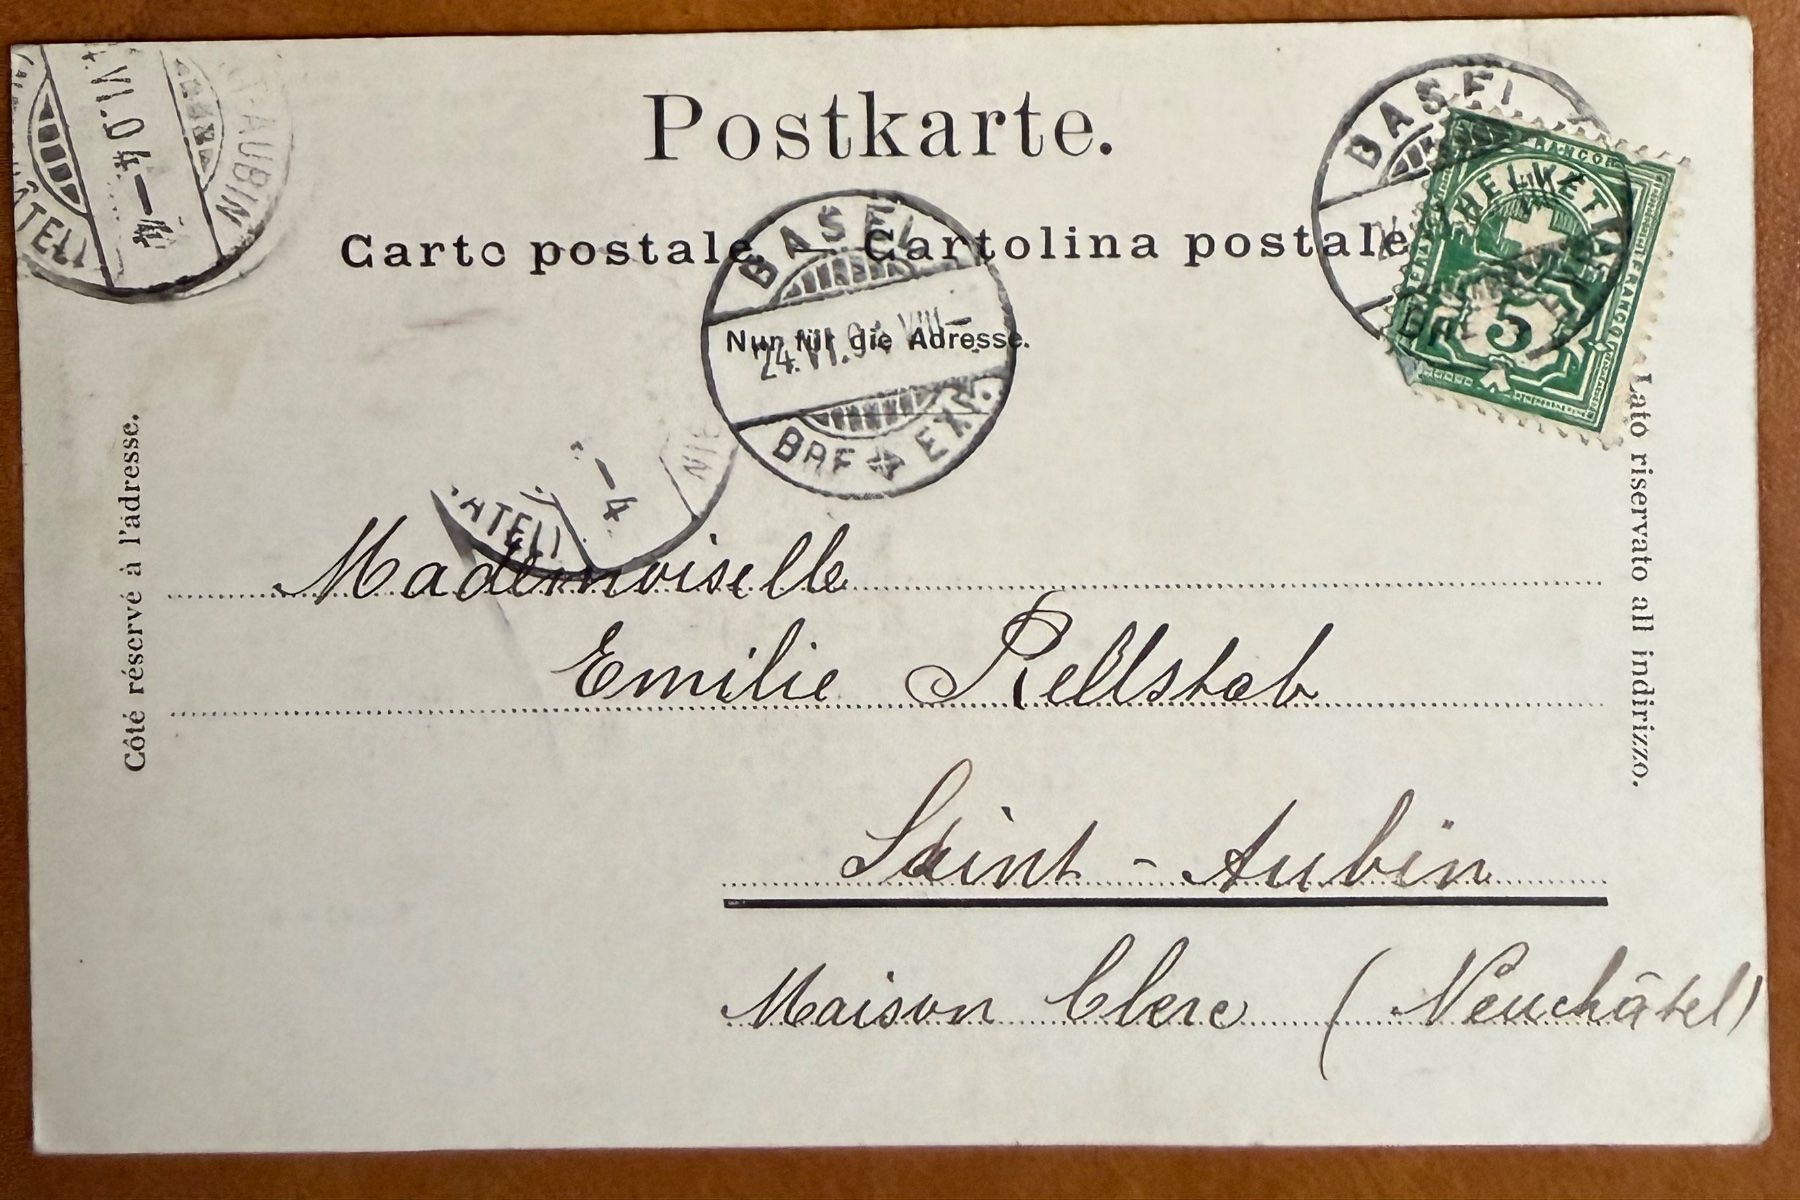 Postkarte.
Carte postale. — Cartolina postale
Nur für die Adresse.
Côté réservé à l'adresse.
Lato riservato all indirizzo.
ST-AUBIN
VI.04
BASEL
24.VI.04.VIII—
BRF EXP.
BASEL
HELVETIA
FRANCO
FRANCO
5
ATEL
—4
BIN
Mademoiselle
Emilie Rellstab
Saint-Aubin
Maison Clerc (Neuchâtel)